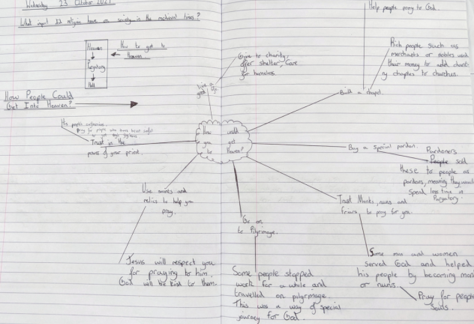 Wednesday 13 October 2021
What impact did religion have on society in the medieval times?
Heaven
How to get to
heaven
Purgatory
Hell
How People Could
Get Into Heaven?
How could
you get
to Heaven?
Give to charity,
offer shelter, care
for homeless
Help people pray to God.
Built a chapel.
Rich people such as
merchants or nobles used
their money to add chantry
chapels to churches.
Buy a special pardon
Pardoners
People sold
these to people as
pardons, meaning they would
spend less time in
Purgatory
Trust Monks, nuns and
friars to pray for you.
Some men and women
served God and helped
his people by becoming monks
or nuns
Pray for people
souls.
Go on
to Pilgrimage.
Some people stopped
work for a while and
travelled on pilgrimage.
This was a way of special
journey for God.
Use saints and
relics to help you
pray.
Jesus will respect you
for praying to him.
God will be kind to them.
Trust in the
power of your priest